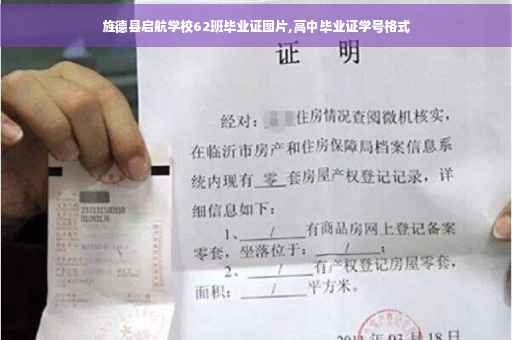 旌德县启航学校62班毕业证图片,高中毕业证学号格式
证 明
经对: 住房情况查阅微机核实,
在临沂市房产和住房保障局档案信息系
统内现有 零 套房屋产权登记记录,详
细信息如下:
1、 / 有商品房网上登记备案
零套,坐落位于: / ;
2、 / 有产权登记房屋零套,
面积: / 平方米。